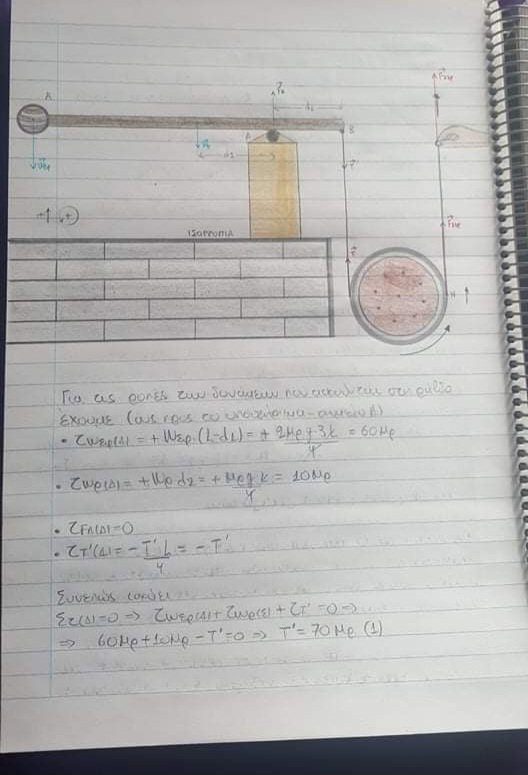 A
B
Δ
d₁
d₂
T⃗
ΙΣΟΡΡΟΠΙΑ
Για τις ροπές των δυνάμεων που ασκούνται στη ράβδο
έχουμε (ως προς το υποστήριγμα-σημείο Δ)
• τwσφ(Δ) = +Wσφ·(L-d₁) = + 2Mρg·3L/4 = 60Mρ
• τwρ(Δ) = +Wρ d₂ = + Mρg L/4 = 10Mρ
• τFΔ(Δ)=0
• τT'(Δ) = -T' L/4 = -T'
Συνεπώς
Στ(Δ)=0 ⇒ τwσφ(Δ) + τwρ(Δ) + τT' =0 ⇒
⇒ 60Mρ+10Mρ-T'=0 ⇒ T'=70Mρ (1)